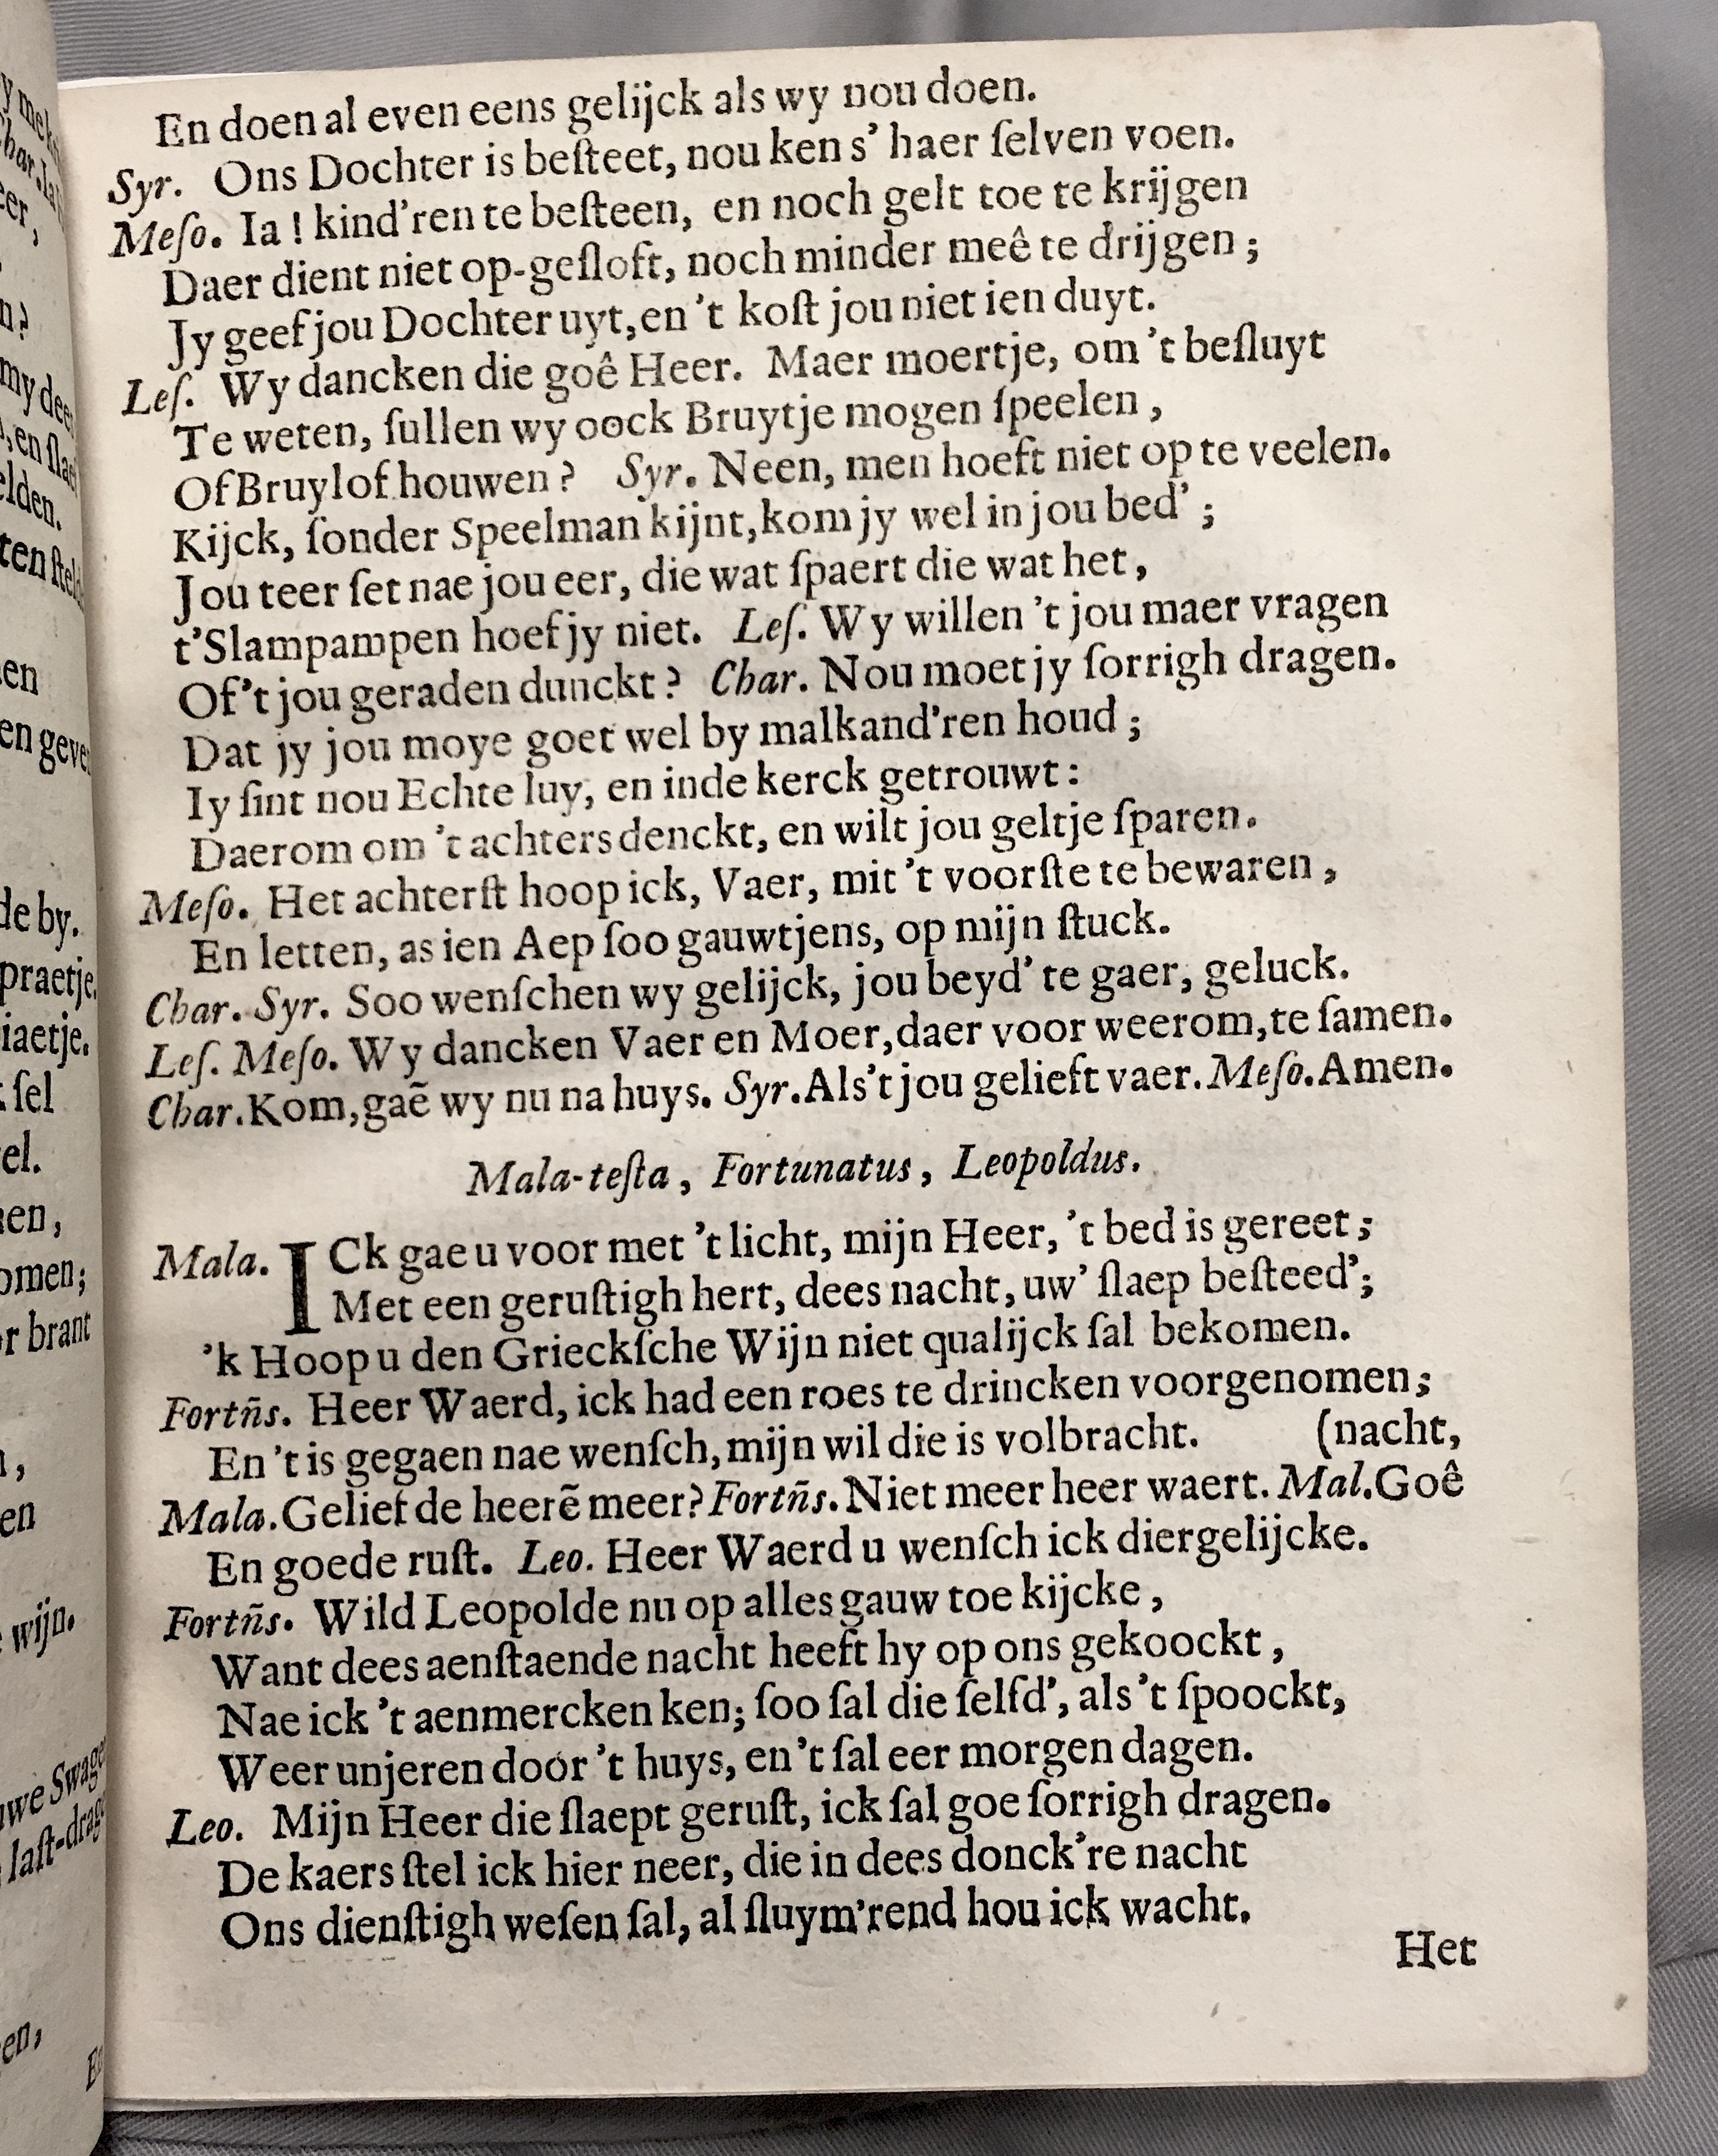 En doen al even eens gelijck als wy nou doen.
Syr. Ons Dochter is beſteet, nou ken s' haer ſelven voen.
Meſo. Ia! kind'ren te beſteen, en noch gelt toe te krijgen
Daer dient niet op-geſloft, noch minder meê te drijgen;
Jy geef jou Dochter uyt, en 't koſt jou niet ien duyt.
Leſ. Wy dancken die goê Heer. Maer moertje, om 't beſluyt
Te weten, ſullen wy oock Bruytje mogen ſpeelen,
Of Bruylof houwen? Syr. Neen, men hoeft niet op te veelen.
Kijck, ſonder Speelman kijnt, kom jy wel in jou bed';
Jou teer ſet nae jou eer, die wat ſpaert die wat het,
t'Slampampen hoef jy niet. Leſ. Wy willen 't jou maer vragen
Of 't jou geraden dunckt? Char. Nou moet jy ſorrigh dragen.
Dat jy jou moye goet wel by malkand'ren houd;
Iy ſint nou Echte luy, en inde kerck getrouwt:
Daerom om 't achters denckt, en wilt jou geltje ſparen.
Meſo. Het achterſt hoop ick, Vaer, mit 't voorſte te bewaren,
En letten, as ien Aep ſoo gauwtjens, op mijn ſtuck.
Char. Syr. Soo wenſchen wy gelijck, jou beyd' te gaer, geluck.
Leſ. Meſo. Wy dancken Vaer en Moer, daer voor weerom, te ſamen.
Char. Kom, gaẽ wy nu na huys. Syr. Als 't jou gelieft vaer. Meſo. Amen.
Mala-teſta, Fortunatus, Leopoldus.
Mala. ICk gae u voor met 't licht, mijn Heer, 't bed is gereet;
Met een geruſtigh hert, dees nacht, uw' ſlaep beſteed';
'k Hoop u den Grieckſche Wijn niet qualijck ſal bekomen.
Fortñs. Heer Waerd, ick had een roes te drincken voorgenomen;
En 't is gegaen nae wenſch, mijn wil die is volbracht. (nacht,
Mala. Gelief de heerẽ meer? Fortñs. Niet meer heer waert. Mal. Goê
En goede ruſt. Leo. Heer Waerd u wenſch ick diergelijcke.
Fortñs. Wild Leopolde nu op alles gauw toe kijcke,
Want dees aenſtaende nacht heeft hy op ons gekoockt,
Nae ick 't aenmercken ken; ſoo ſal die ſelfd', als 't ſpoockt,
Weer unjeren door 't huys, en 't ſal eer morgen dagen.
Leo. Mijn Heer die ſlaept geruſt, ick ſal goe ſorrigh dragen.
De kaers ſtel ick hier neer, die in dees donck're nacht
Ons dienſtigh weſen ſal, al ſluym'rend hou ick wacht.
Het